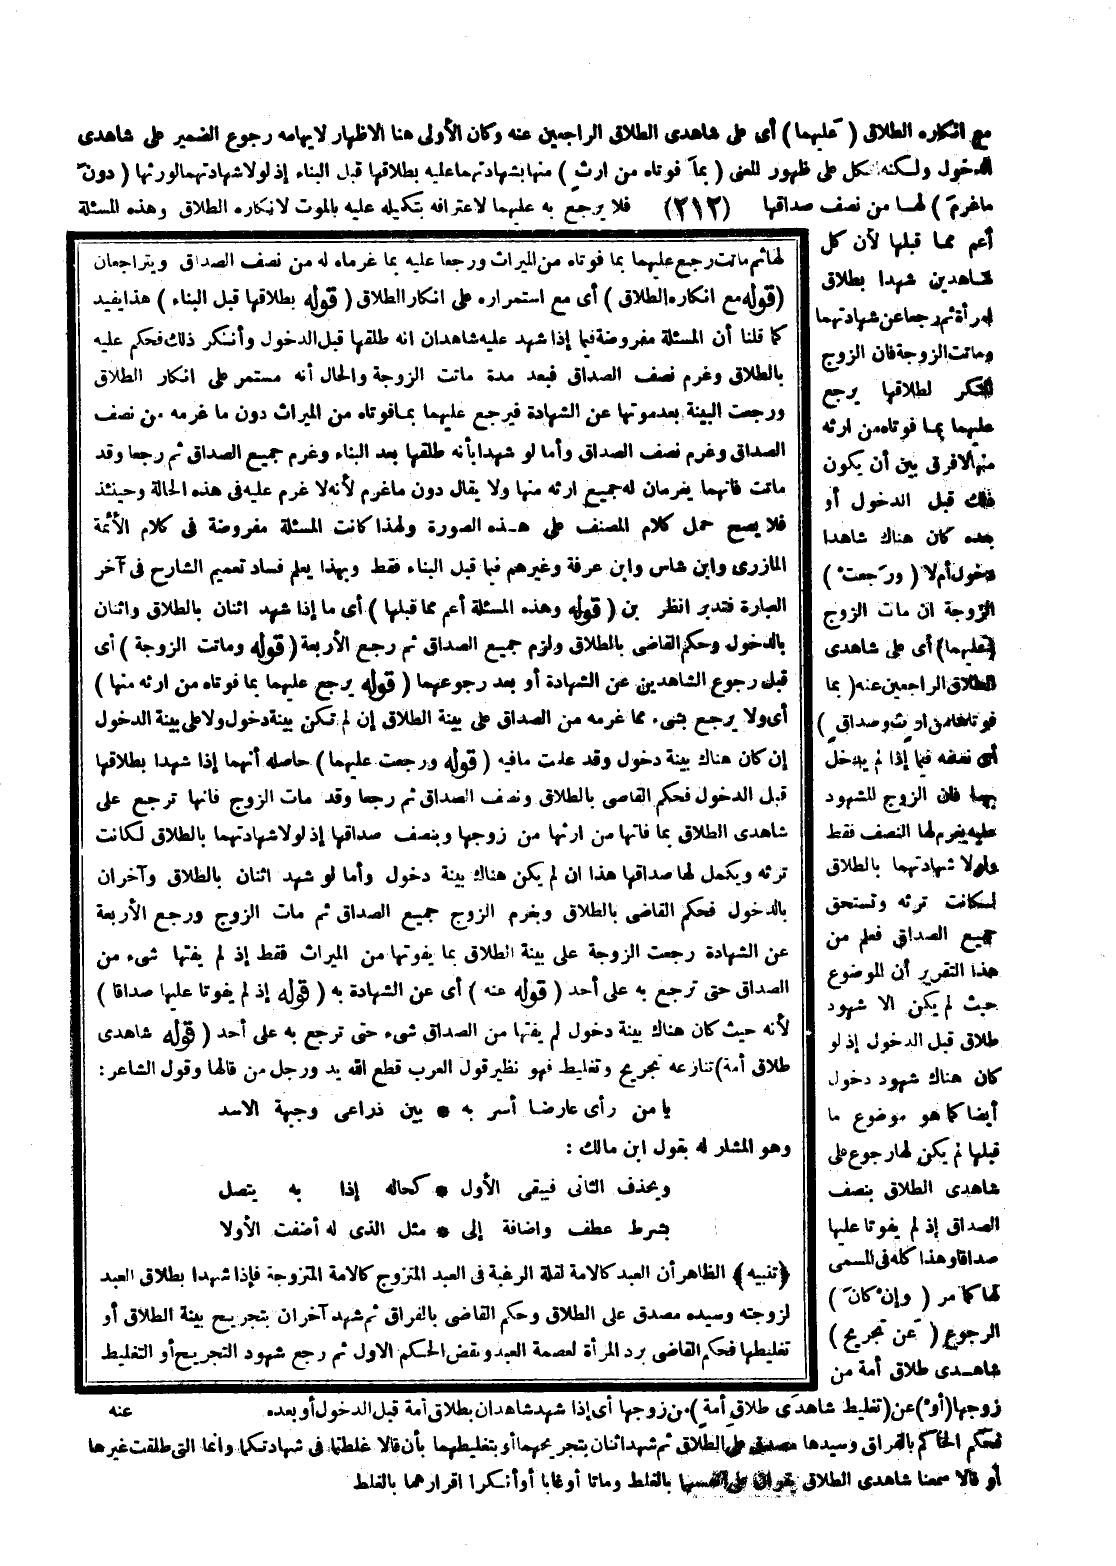 مع انكاره الطلاق ( عليهما ) أى على شاهدى الطلاق الراجعين عنه وكان الأولى هنا الاظهار لايهامه رجوع الضمير على شاهدى
الدخول ولكنه اتكل على ظهور المعنى ( بما فوتاه من ارث ) منها بشهادتهما عليه بطلاقها قبل البناء إذ لولا شهادتهما لورثها ( دون
ما غرم ) لها من نصف صداقها (٢١٢) فلا يرجع به عليهما لاعترافه بتكميله عليه بالموت لانكاره الطلاق وهذه المسئلة
أعم مما قبلها لأن كل
شاهدين شهدا بطلاق
امرأة ثم رجعا عن شهادتهما
وماتت الزوجة فان الزوج
المنكر لطلاقها يرجع
عليهما بما فوتاه من ارثه
منها لافرق بين أن يكون
ذلك قبل الدخول أو
بعده كان هناك شاهدا
دخول أم لا ( ورجعت )
الزوجة ان مات الزوج
( عليهما ) أى على شاهدى
الطلاق الراجعين عنه ( بما
فوتاها من ارث وصداق )
أى نصفه فيما إذا لم يدخل
بها فان الزوج المشهود
عليه يغرم لها النصف فقط
ولولا شهادتهما بالطلاق
لسكانت ترثه وتستحق
جميع الصداق فعلم من
هذا التقرير أن الموضوع
حيث لم يكن الا شهود
طلاق قبل الدخول إذ لو
كان هناك شهود دخول
أيضا كما هو موضوع ما
قبلها لم يكن لها رجوع على
شاهدى الطلاق بنصف
الصداق إذ لم يفوتا عليها
صداقا وهذا كله فى المسمى
لها كما مر ( وإن كان )
الرجوع ( عن تجريح )
شاهدى طلاق أمة من
زوجها ( أو ) عن ( تغليط شاهدى طلاق أمة ) من زوجها أى إذا شهد شاهدان بطلاق أمة قبل الدخول أو بعده
فحكم الحاكم بالفراق وسيدها مصدق على الطلاق ثم شهد اثنان بتجريحهما أو بتغليطهما بأن قالا غلطتما فى شهادتكما وانما التى طلقت غيرها
أو قالا سمعنا شاهدى الطلاق يقران على أنفسهما بالغلط وماتا أو غابا أو أنكرا اقرارهما بالغلط
لها ثم ماتت رجع عليهما بما فوتاه من الميراث ورجعا عليه بما غرماه له من نصف الصداق ويتراجعان
( قوله مع انكاره الطلاق ) أى مع استمراره على انكار الطلاق ( قوله بطلاقها قبل البناء ) هذا يفيد
كما قلنا أن المسئلة مفروضة فيما إذا شهد عليه شاهدان انه طلقها قبل الدخول وأنكر ذلك فحكم عليه
بالطلاق وغرم نصف الصداق فبعد مدة ماتت الزوجة والحال أنه مستمر على انكار الطلاق
ورجعت البينة بعد موتها عن الشهادة فيرجع عليهما بما فوتاه من الميراث دون ما غرمه من نصف
الصداق وغرم نصف الصداق وأما لو شهدا بأنه طلقها بعد البناء وغرم جميع الصداق ثم رجعا وقد
ماتت فانهما يغرمان له جميع ارثه منها ولا يقال دون ماغرم لأنه لا غرم عليه فى هذه الحالة وحينئذ
فلا يصح حمل كلام المصنف على هذه الصورة ولهذا كانت المسئلة مفروضة فى كلام الأئمة
المازرى وابن شاس وابن عرفة وغيرهم فيما قبل البناء فقط وبهذا يعلم فساد تعميم الشارح فى آخر
العبارة فتدبر انظر بن ( قوله وهذه المسئلة أعم مما قبلها ) أى ما إذا شهد اثنان بالطلاق واثنان
بالدخول وحكم القاضى بالطلاق ولزم جميع الصداق ثم رجع الأربعة ( قوله وماتت الزوجة ) أى
قبل رجوع الشاهدين عن الشهادة أو بعد رجوعهما ( قوله يرجع عليهما بما فوتاه من ارثه منها )
أى ولا يرجع بشىء مما غرمه من الصداق على بينة الطلاق إن لم تكن بينة دخول ولا على بينة الدخول
إن كان هناك بينة دخول وقد علمت مافيه ( قوله ورجعت عليهما ) حاصله أنهما إذا شهدا بطلاقها
قبل الدخول فحكم القاضى بالطلاق ونصف الصداق ثم رجعا وقد مات الزوج فانها ترجع على
شاهدى الطلاق بما فاتها من ارثها من زوجها وبنصف صداقها إذ لولا شهادتهما بالطلاق لكانت
ترثه ويكمل لها صداقها هذا ان لم يكن هناك بينة دخول وأما لو شهد اثنان بالطلاق وآخران
بالدخول فحكم القاضى بالطلاق وبغرم الزوج جميع الصداق ثم مات الزوج ورجع الأربعة
عن الشهادة رجعت الزوجة على بينة الطلاق بما يفوتها من الميراث فقط إذ لم يفتها شىء من
الصداق حتى ترجع به على أحد ( قوله عنه ) أى عن الشهادة به ( قوله إذ لم يفوتا عليها صداقا )
لأنه حيث كان هناك بينة دخول لم يفتها من الصداق شىء حتى ترجع به على أحد ( قوله شاهدى
طلاق أمة ) تنازعه تجريح وتغليط فهو نظير قول العرب قطع الله يد ورجل من قالها وقول الشاعر :
يا من رأى عارضا أسر به * بين ذراعى وجبهة الاسد
وهو المشار له بقول ابن مالك :
ويحذف الثانى فيبقى الأول * كحاله إذا به يتصل
بشرط عطف واضافة إلى * مثل الذى له أضفت الأولا
﴿تنبيه﴾ الظاهر أن العبد كالامة لقلة الرغبة فى العبد المتزوج كالامة المتزوجة فإذا شهدا بطلاق العبد
لزوجته وسيده مصدق على الطلاق وحكم القاضى بالفراق ثم شهد آخران بتجريح بينة الطلاق أو
تغليطها فحكم القاضى برد المرأة لعصمة العبد ونقض الحكم الاول ثم رجع شهود التجريح أو التغليط
عنه